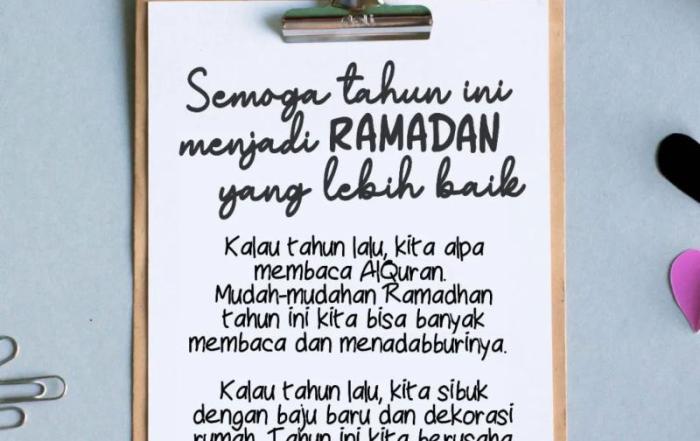 Semoga tahun ini
menjadi RAMADAN
yang lebih baik
Kalau tahun lalu, kita alpa
membaca AlQuran.
Mudah-mudahan Ramadhan
tahun ini kita bisa banyak
membaca dan menadabburinya.
Kalau tahun lalu, kita sibuk
dengan baju baru dan dekorasi
rumah. Tahun ini kita berusaha